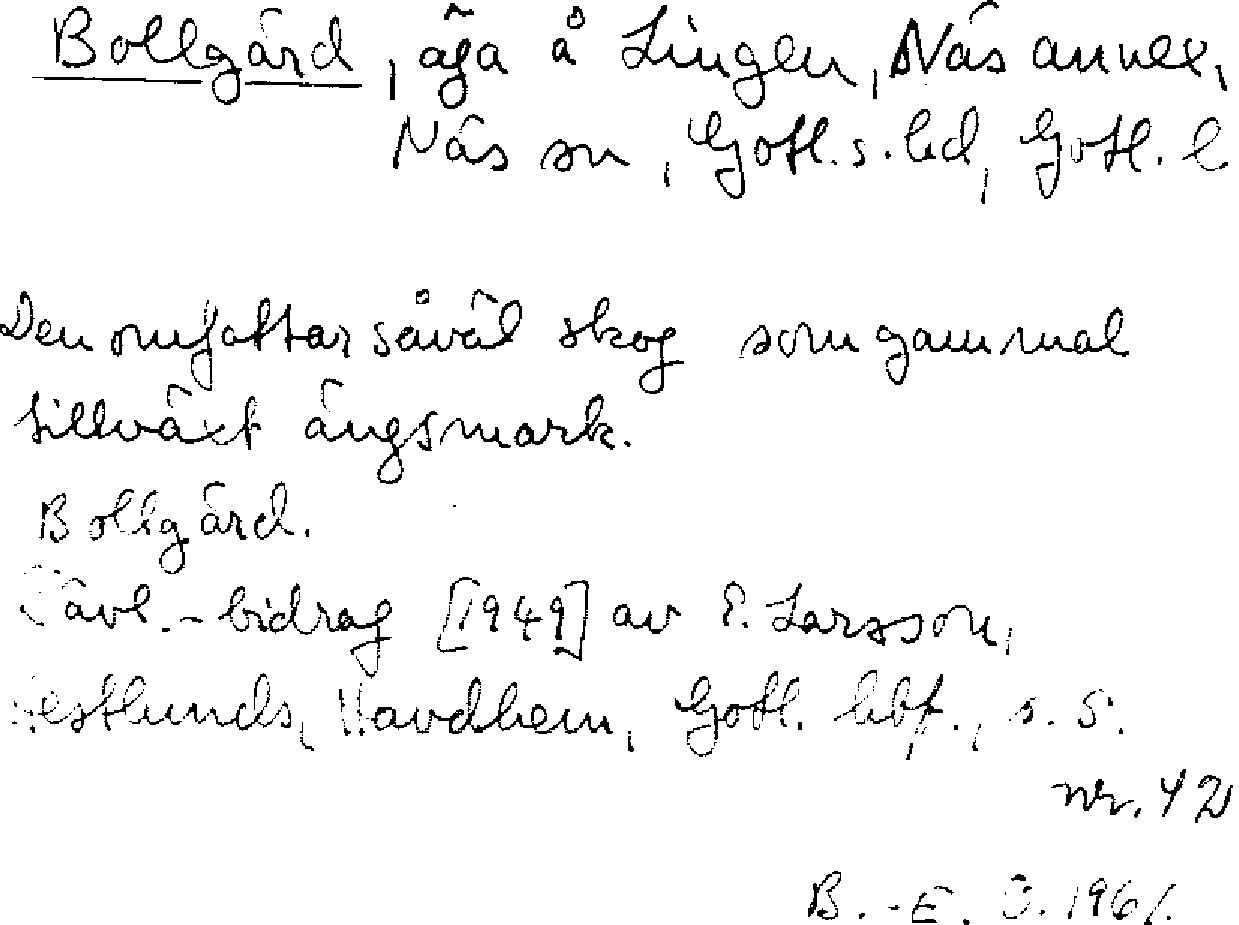 Bollgärd, äga å Lingen, Näs annex,
Näs sn, Gotl. s. hd, Gotl. l
Den omfattar såväl skog som gammal
tillväxt ängsmark.
Bollgärd.
Tävl.-bidrag [1949] av E. Larsson,
Hestlunds, Havdhem, Gotl. hbf., s. 5.
nr. 42
B.-E. O. 1961.